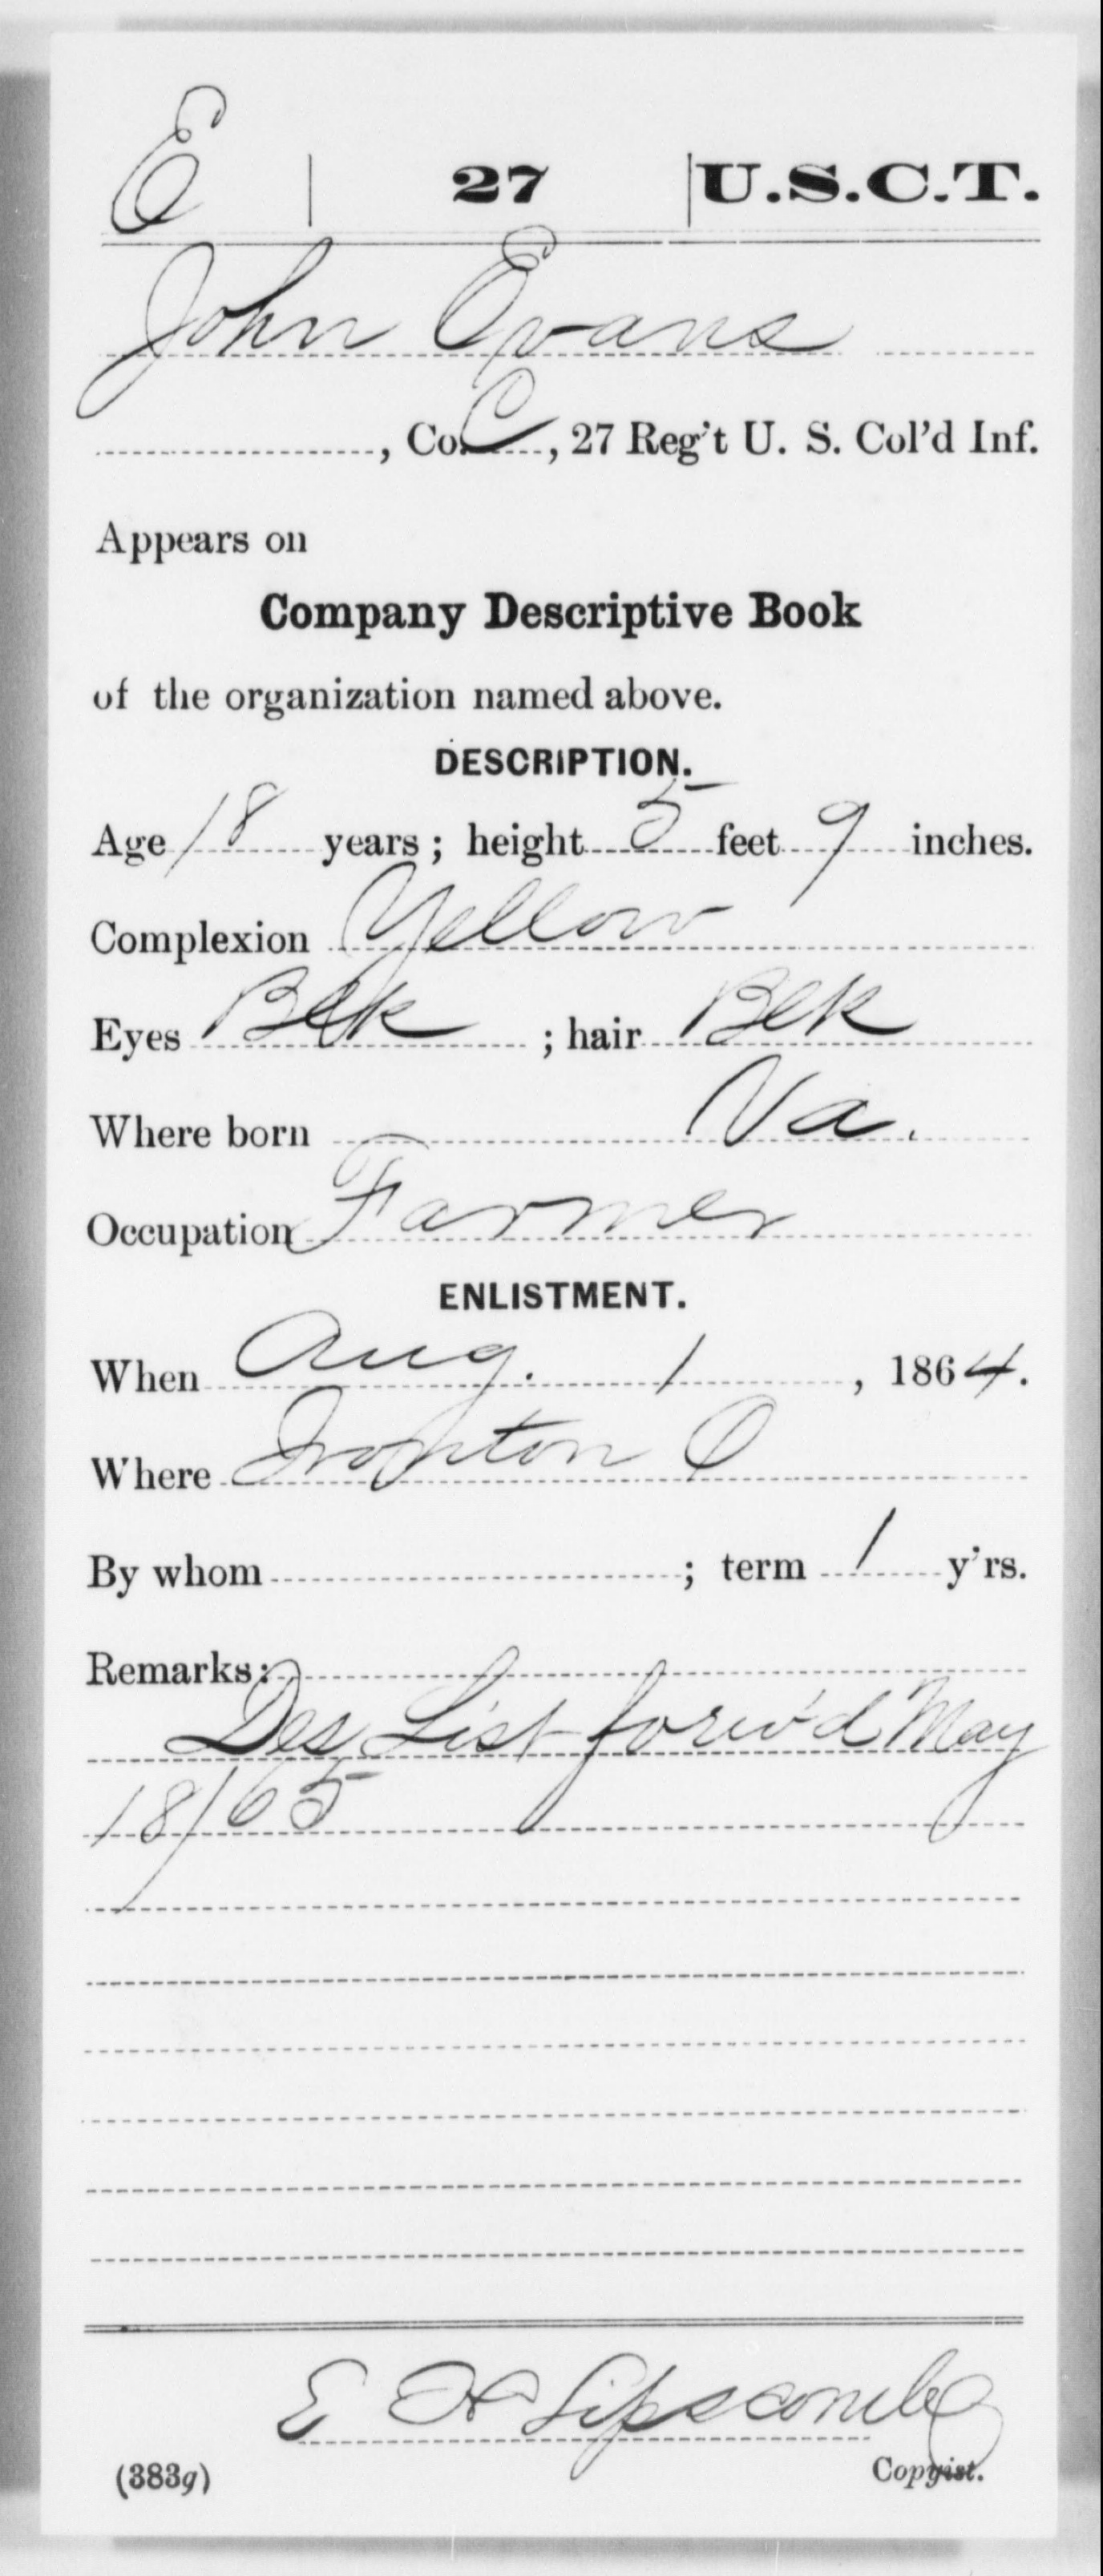 E | 27 | U.S.C.T.
John Evans
, Co. C, 27 Reg't U. S. Col'd Inf.
Appears on
Company Descriptive Book
of the organization named above.
DESCRIPTION.
Age 18 years; height 5 feet 9 inches.
Complexion Yellow
Eyes Blk ; hair Blk
Where born Va.
Occupation Farmer
ENLISTMENT.
When Aug. 1, 1864.
Where Ironton O
By whom ; term 1 y'rs.
Remarks:
Des List forw'd May
18/65
E H Lipscomb
(383g) Copyist.